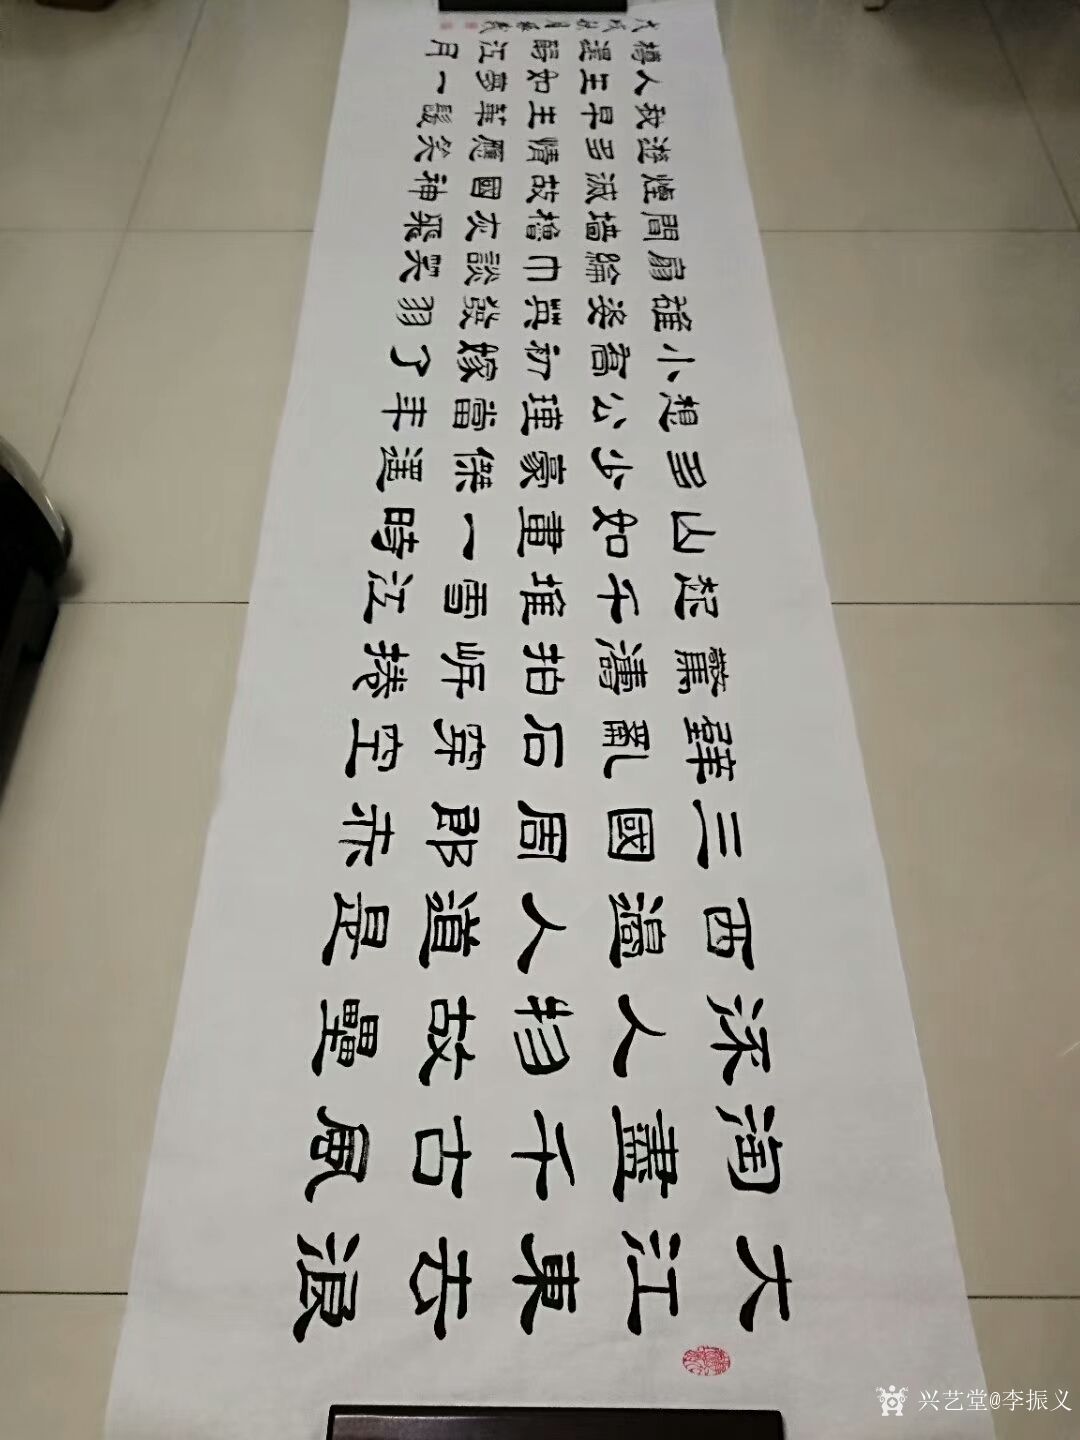 大江東去浪
淘盡千古風
流人物故壘
西邊人道是
三國周郎赤
壁亂石穿空
驚濤拍岸捲
起千堆雪江
山如畫一時
多少豪傑遥
想公瑾當年
小喬初嫁了
雄姿英發羽
扇綸巾談笑
間墻櫓灰飛
煙滅故國神
遊多情應笑
我早生華髮
人生如夢一
樽還酹江月
戊戌秋月振義
兴艺堂@李振义